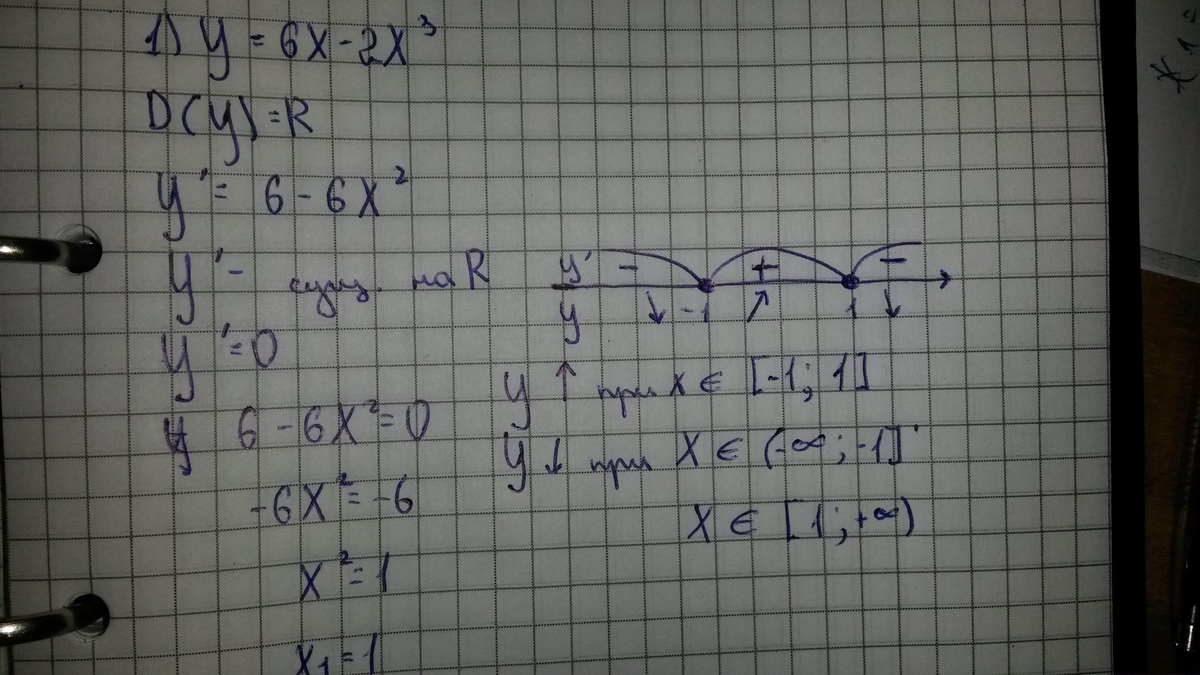 1) y = 6x - 2x³
D(y) = R
y' = 6 - 6x²
y' - сущ. на R
y' = 0
6 - 6x² = 0
-6x² = -6
x² = 1
x₁ = 1
y' - + -
y ↓ -1 ↗ 1 ↓
y ↑ при x ∈ [-1; 1]
y ↓ при x ∈ (-∞; -1]
x ∈ [1; +∞)